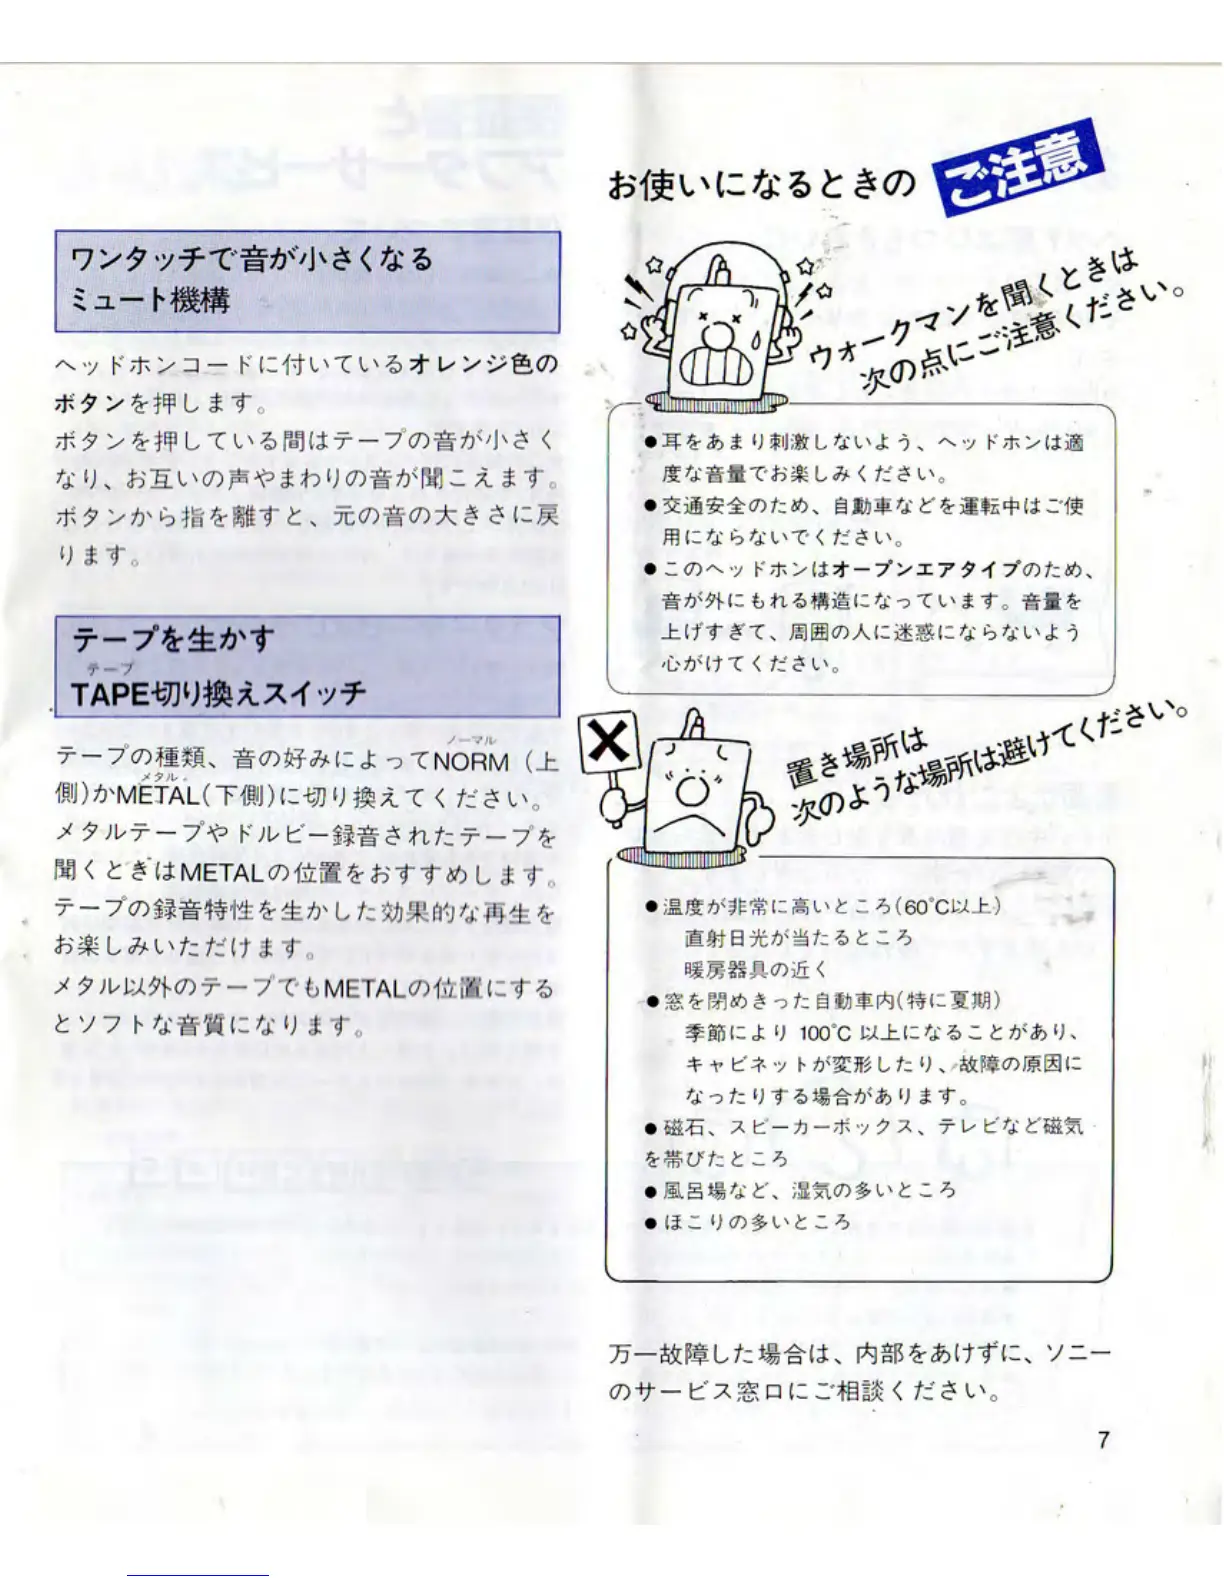 ワンタッチで音が小さくなる
ミュート機構
ヘッドホンコードに付いているオレンジ色の
ボタンを押します。
ボタンを押している間はテープの音が小さく
なり、お互いの声やまわりの音が聞こえます。
ボタンから指を離すと、元の音の大きさに戻
ります。
テープを生かす
テープ
TAPE切り換えスイッチ
ノーマル
テープの種類、音の好みによってNORM（上
メタル
側)かMETAL(下側)に切り換えてください。
メタルテープやドルビー録音されたテープを
聞くときはMETALの位置をおすすめします。
テープの録音特性を生かした効果的な再生を
お楽しみいただけます。
メタル以外のテープでもMETALの位置にする
とソフトな音質になります。
お使いになるときの ご注意
ウォークマンを聞くときは
次の点にご注意ください。
●耳をあまり刺激しないよう、ヘッドホンは適
度な音量でお楽しみください。
●交通安全のため、自動車などを運転中はご使
用にならないでください。
●このヘッドホンはオープンエアタイプのため、
音が外にもれる構造になっています。音量を
上げすぎて、周囲の人に迷惑にならないよう
心がけてください。
置き場所は
次のような場所は避けてください。
●温度が非常に高いところ(60℃以上)
直射日光が当たるところ
暖房器具の近く
●窓を閉めきった自動車内(特に夏期)
季節により 100℃ 以上になることがあり、
キャビネットが変形したり、故障の原因に
なったりする場合があります。
●磁石、スピーカーボックス、テレビなど磁気
を帯びたところ
●風呂場など、湿気の多いところ
●ほこりの多いところ
万一故障した場合は、内部をあけずに、ソニー
のサービス窓口にご相談ください。
7